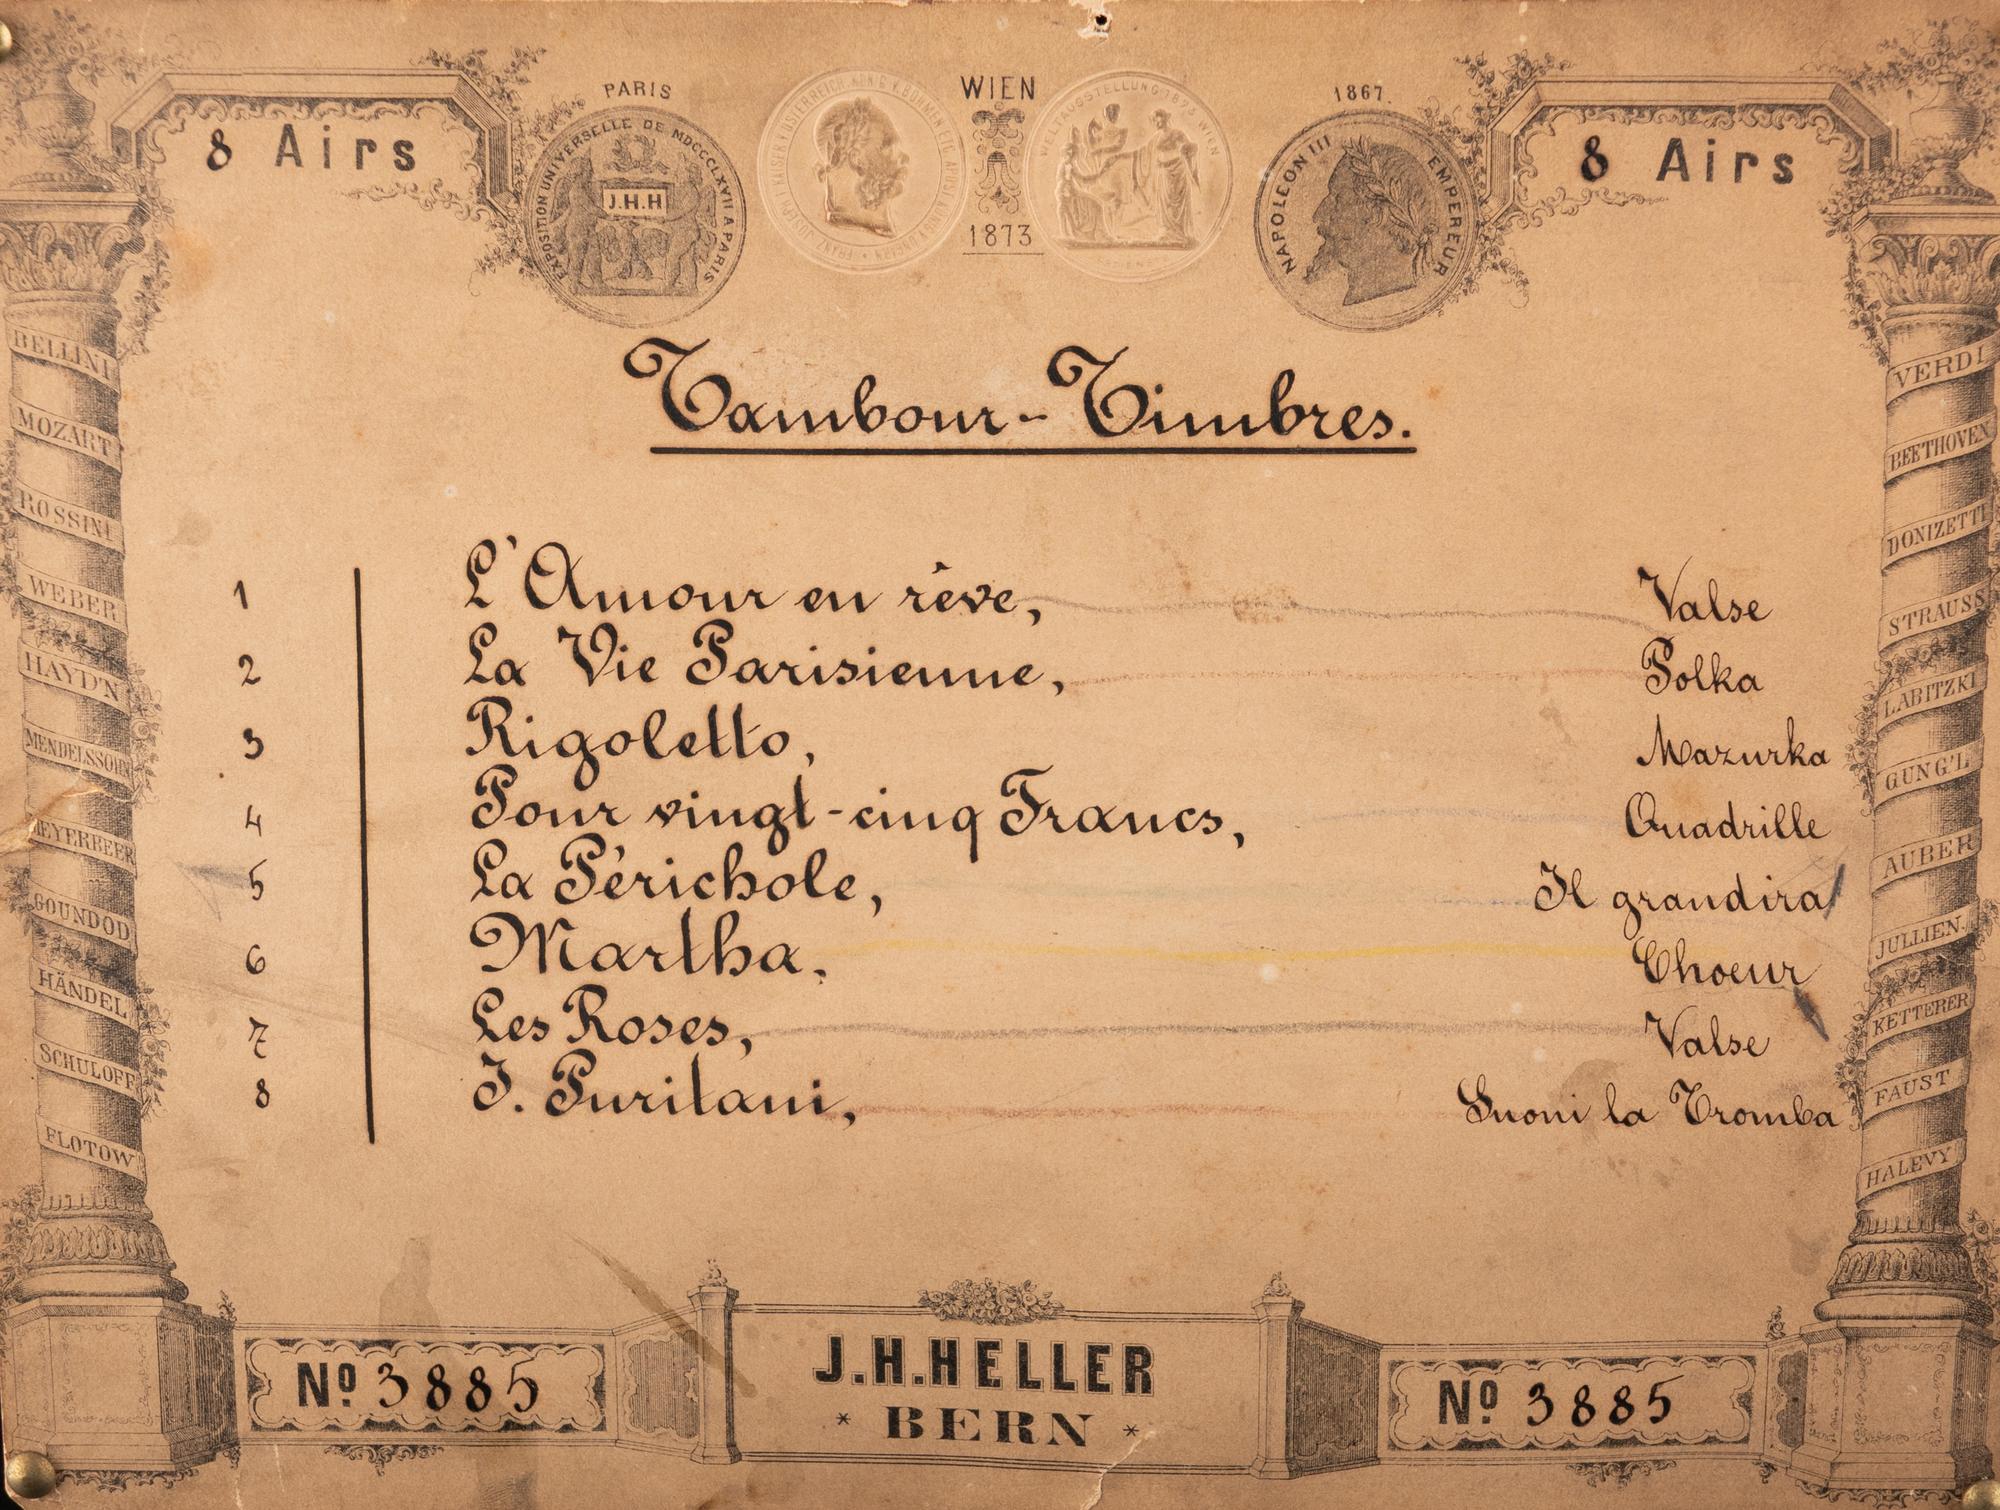 8 Airs
PARIS
EXPOSITION UNIVERSELLE DE MDCCCLXVII A PARIS
J.H.H
WIEN
1873
WELTAUSSTELLUNG 1873 WIEN
1867.
NAPOLEON III EMPEREUR
8 Airs
Tambour-Timbres.
1 L'Amour en rêve, Valse
2 La Vie Parisienne, Polka
3 Rigoletto, Mazurka
4 Pour vingt-cinq Francs, Quadrille
5 La Périchole, Il grandira
6 Martha, Choeur
7 Les Roses, Valse
8 I. Puritani, Suoni la Tromba
BELLINI
MOZART
ROSSINI
WEBER
HAYD'N
MENDELSSOHN
MEYERBEER
GOUNDOD
HÄNDEL
SCHULOFF
FLOTOW
VERDI
BEETHOVEN
DONIZETTI
STRAUSS
LABITZKI
GUNG'L
AUBER
JULLIEN.
KETTERER
FAUST
HALEVY
Nº 3885
J.H.HELLER
* BERN *
Nº 3885